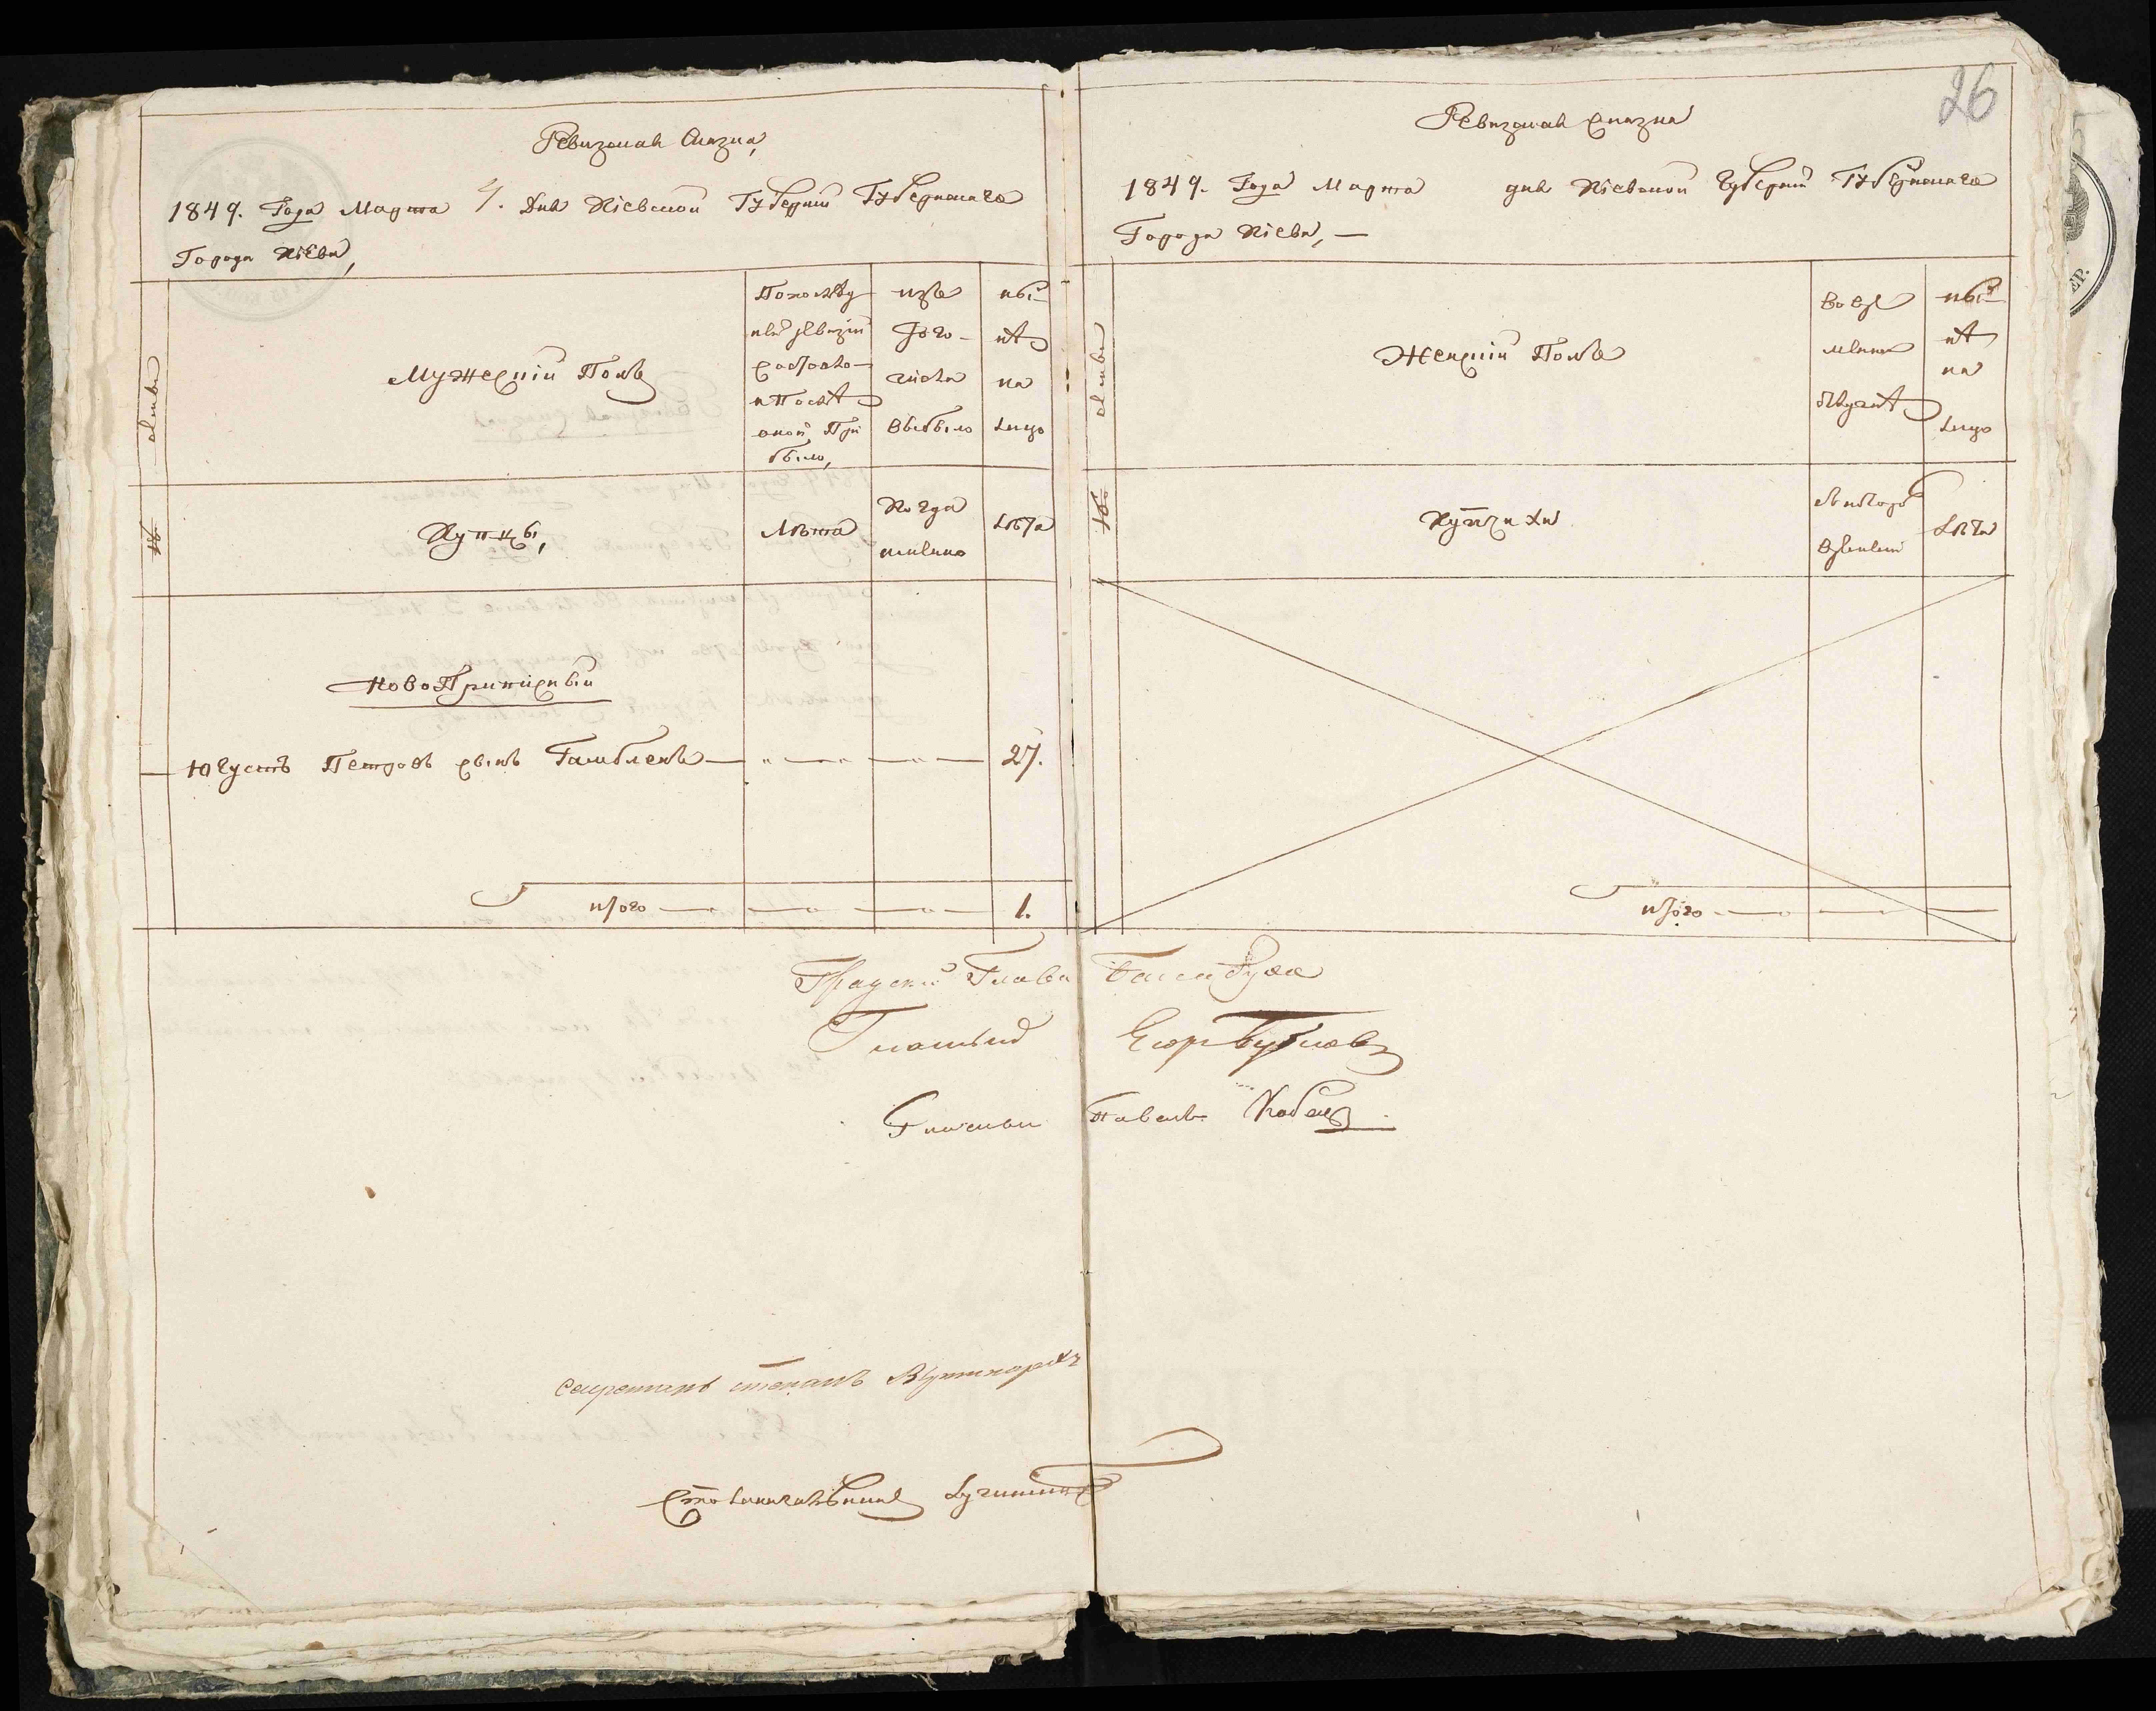 Ревизская Сказка,
1849. Года Марта 4. Дня Кіевской Губерніи Губернскаго
Города Кіева,
Семьи
Мужескій Полъ
По последней ревизіи состояло и После оной При было,
изъ того числа выбыло
ныне на лицо
№
Купцы,
Лѣта
Когда именно
Лѣта
НовоПриписный
Югустъ Петровъ сынъ Гамбленъ
27.
итого
1.
26
Ревизская сказка
1849. Года Марта дня Кіевской Губерніи Губернскаго
Города Кіева, —
Семьи
Женскій Полъ
во вре менной отлучкѣ
ныне на лицо
№
Купчихи
Лѣта
итого
Градскій Глава
Гласный Егоръ Бубновъ
Гласный Павелъ
Секретарь Степанъ
Столоначальникъ